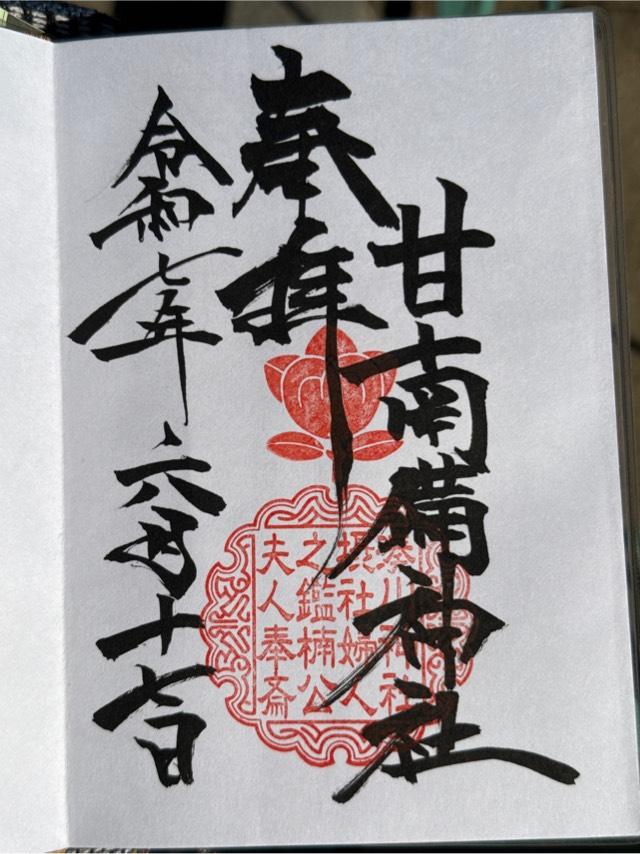 甘南備神社
奉拝
令和七年六月十七日
湊川神社
摂社婦人
之鑑楠公
夫人奉斎